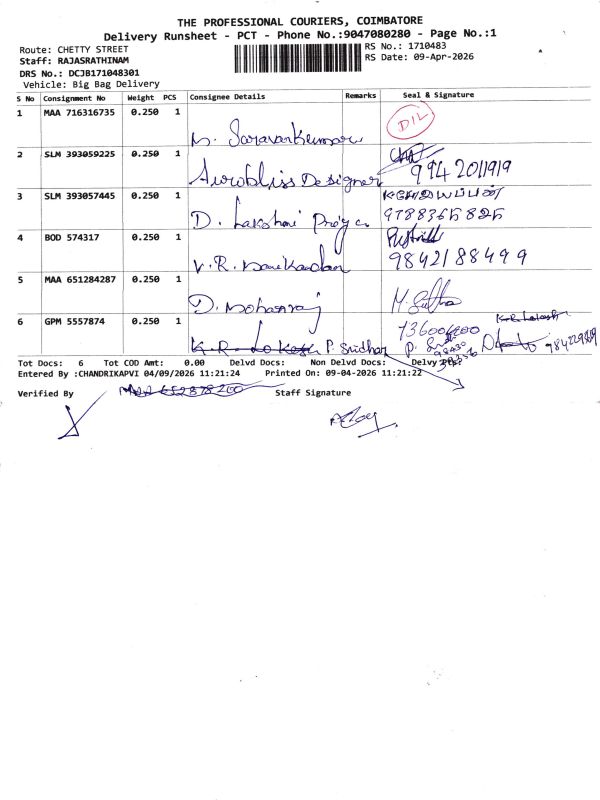 THE PROFESSIONAL COURIERS, COIMBATORE
Delivery Runsheet - PCT - Phone No.:9047080280 - Page No.:1
Route: CHETTY STREET
RS No.: 1710483
Staff: RAJASRATHINAM
RS Date: 09-Apr-2026
DRS No.: DCJB171048301
Vehicle: Big Bag Delivery
S No Consignment No Weight PCS Consignee Details Remarks Seal & Signature
1 MAA 716316735 0.250 1
DIL
2 SLM 393059225 0.250 1
Aurobliss Designer 9942011919
3 SLM 393057445 0.250 1
D. Lakshmi Priya 9788365825
4 BOD 574317 0.250 1
V.R. 9842188499
5 MAA 651284287 0.250 1
D. Mohanraj
6 GPM 5557874 0.250 1
K.R. Lokesh P. Sridhar
Tot Docs: 6 Tot COD Amt: 0.00 Delvd Docs: Non Delvd Docs: Delvy
Entered By :CHANDRIKAPVI 04/09/2026 11:21:24 Printed On: 09-04-2026 11:21:22
Verified By Staff Signature